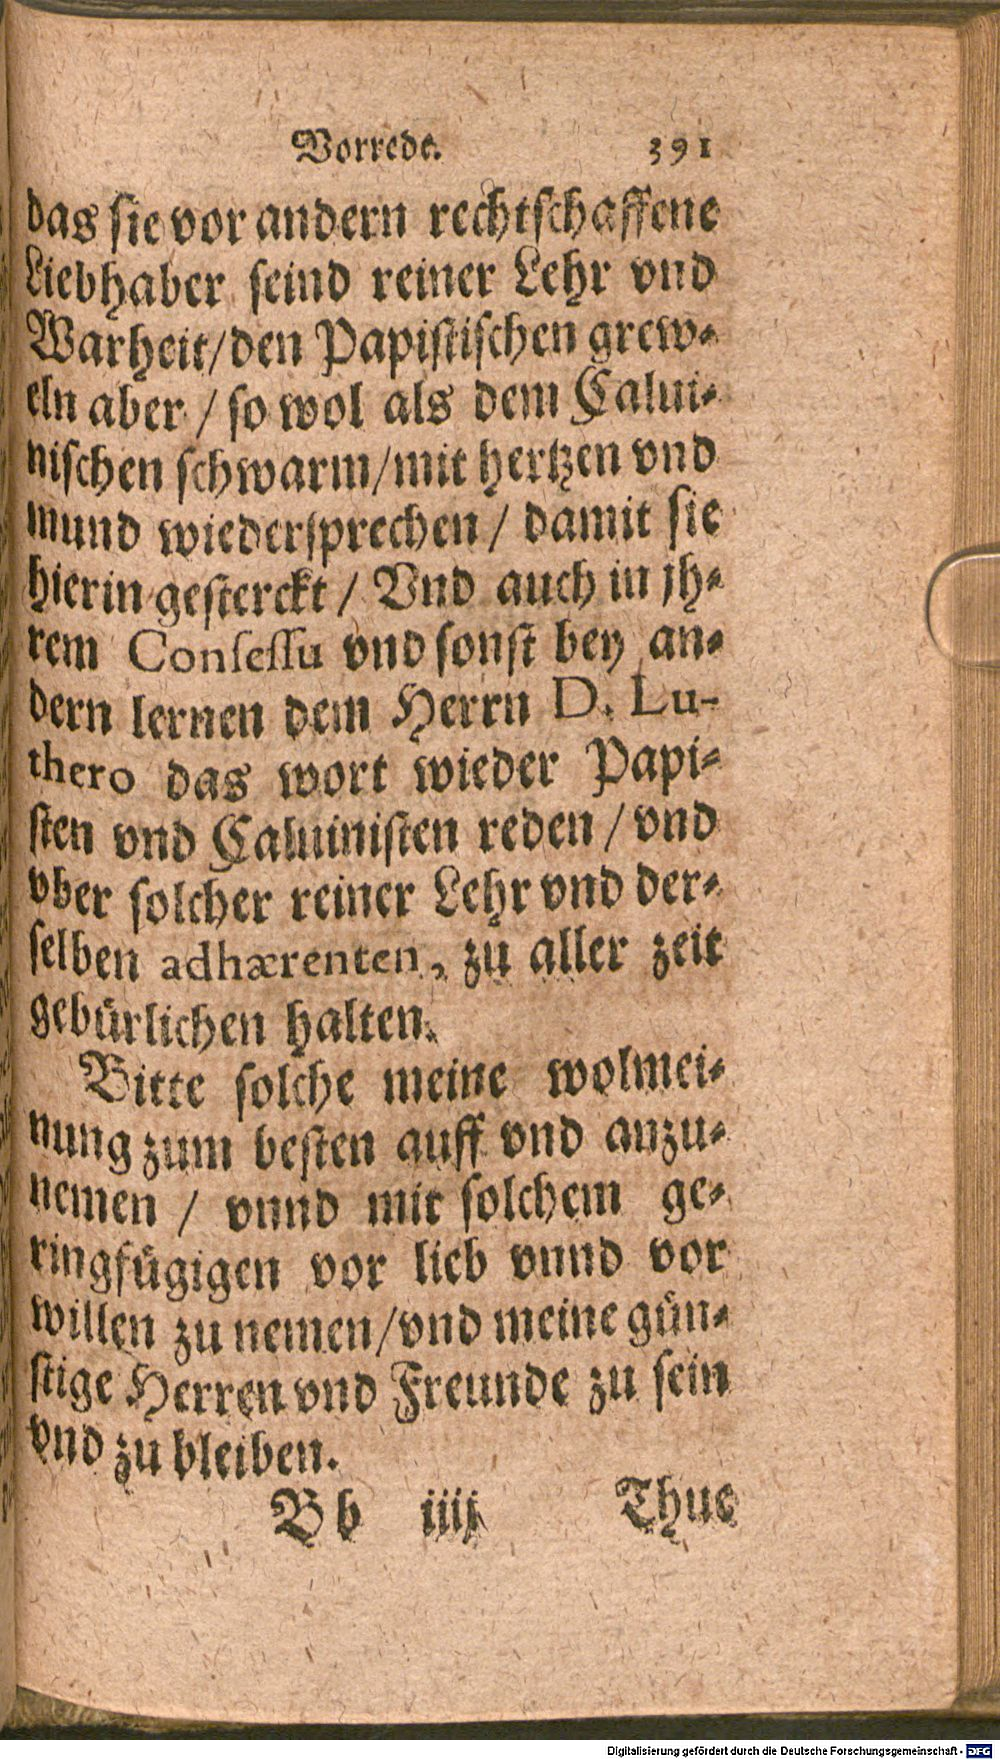 Vorrede. 391
das sie vor andern rechtschaffene
Liebhaber seind reiner Lehr vnd
Warheit/den Papistischen grew⸗
eln aber / so wol als dem Calui⸗
nischen schwarm/mit hertzen vnd
mund wiedersprechen / damit sie
hierin gesterckt / Vnd auch in jh⸗
rem Consessu vnd sonst bey an⸗
dern lernen dem Herrn D. Lu-
thero das wort wieder Papi⸗
sten vnd Caluinisten reden / vnd
vber solcher reiner Lehr vnd der⸗
selben adhærenten, zu aller zeit
gebürlichen halten.
Bitte solche meine wolmei⸗
nung zum besten auff vnd anzu⸗
nemen / vnnd mit solchem ge⸗
ringfügigen vor lieb vnnd vor
willen zu nemen/vnd meine gün⸗
stige Herren vnd Freunde zu sein
vnd zu bleiben.
Bb iiij Thue
Digitalisierung gefördert durch die Deutsche Forschungsgemeinschaft - DFG